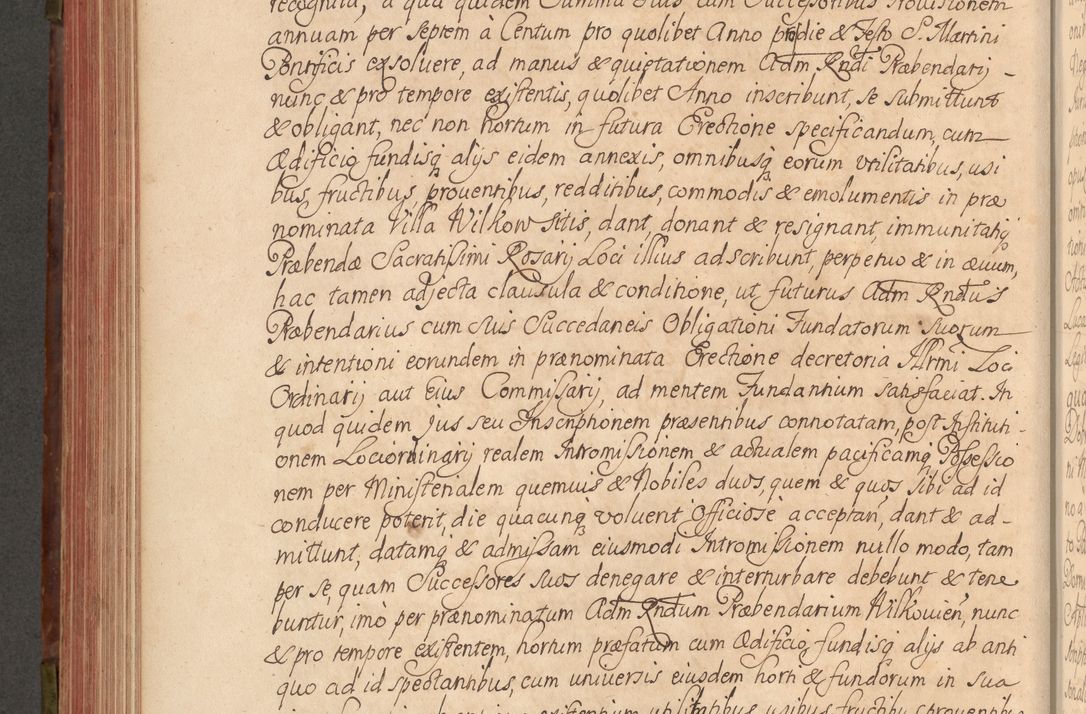 recognita, a qua quidem Summa Suis cum Successoribus Provisionem
annuam per septem à Centum pro quolibet Anno pridie & Festo S. Martini
Pontificis exsoluere, ad manus & quietationem Adm Rndi Præbendarij -
nunc & pro tempore existentis, quolibet Anno inscribunt, se submittunt
& obligant, nec non hortum in futura Erectione specificandum, cum
Ædificio fundisq alijs eidem annexis, omnibusq eorum utilitatibus, usi
bus, fructibus, prouentibus, redditibus, commodis & emolumentis in præ
nominata Villa Wilkow sitis, dant, donant & resignant, immunitatiq
Præbendæ Sacratissimi Rosarij Loci illius adscribunt, perpetuo & in æuum,
hac tamen adjecta clausula & conditione, ut futurus Adm Rndus
Præbendarius cum suis Succedaneis Obligationi Fundatorum suorum
& intentioni eorundem in prænominata Erectione decretoria Illrmi Loci
Ordinarij aut Eius Commissarij, ad mentem Fundantium satisfaciat. In
quod quidem jus seu Inscriptionem præsentibus connotatam, post Instituti-
onem Lociordinarij realem Intromissionem & actualem pacificamq Possessio
nem per Ministerialem quemuis & Nobiles duos, quem & quos sibi ad id
conducere poterit, die quacunq voluerit officiosè acceptan, dant & ad-
mittunt, datamq & admissam eiusmodi Intromissionem nullo modo, tam
per se, quam Successores suos denegare & interturbare debebunt & tene
buntur, imò per prænominatum Adm Rndum Præbendarium Wilkouien, nunc
& pro tempore existentem, hortum præfatum cum Ædificio, fundisq alijs ab anti
quo ad id spectantibus, cum universis eiusdem horti & fundorum in sua
existentium utilitatibus usibus fructib prouentib